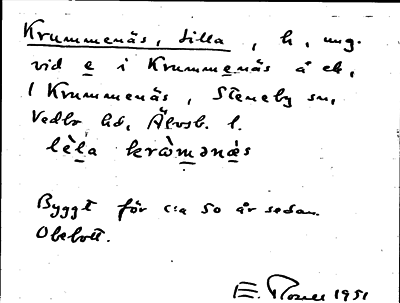 Krummenäs, Lilla, h, ung.
vid e i Krummenäs å ek,
1 Krummenäs, Steneby sn,
Vedbo hd, Älvsb. l.
lèla kràmənæs
Byggt för c:a 50 år sedan.
Obebott.
E. 1951